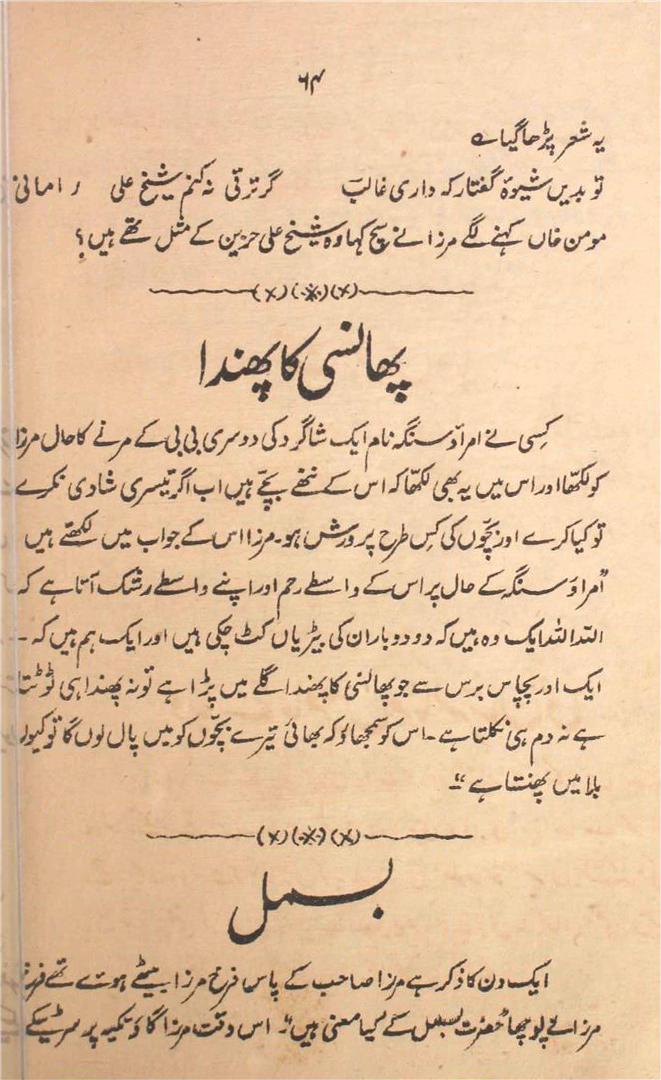 ۶۴
یہ شعر پڑھا گیا ے
تو بدیں شیوۂ گفتار کہ داری غالب گر ترقی نہ کنم شیخ علی را مانی
مومن خاں کہنے لگے مرزا نے سچ کہا وہ شیخ علی حزین کے مثل تھے ہیں؟
پھانسی کا پھندا
کسی نے امراؤ سنگہ نام ایک شاگرد کی دوسری بی بی کے مرنے کا حال مرزا
کو لکھا اور اس میں یہ بھی لکھا کہ اس کے ننھے بچے ہیں اب اگر تیسری شادی نکرے
تو کیا کرے اور بچّوں کی کس طرح پرورش ہو۔ مرزا اس کے جواب میں لکھتے ہیں
"امراؤ سنگہ کے حال پر اس کے واسطے رحم اور اپنے واسطے رشک آتا ہے کہ
اللہ اللہ ایک وہ ہیں کہ دو دو بار ان کی بیڑیاں کٹ چکی ہیں اور ایک ہم ہیں کہ
ایک اوپر پچاس برس سے جو پھانسی کا پھندا گلے میں پڑا ہے تو نہ پھندا ہی ٹوٹتا
ہے نہ دم ہی نکلتا ہے۔ اس کو سمجھاؤ کہ بھائی تیرے بچّوں کو میں پال لوں گا تو کیوں
بلا میں پھنستا ہے"۔
بسمل
ایک دن کا ذکر ہے مرزا صاحب کے پاس فرخ مرزا بیٹھے ہوئے تھے
مرزا نے پوچھا "حضرت بسمل کے کیا معنی ہیں"۔ اس وقت مرزا گاؤ تکیہ پر سر ٹیکے